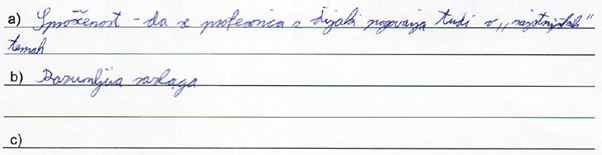 a) Sproščenost - da se profesorica z dijaki pogovarja tudi o ,,najstniških"
temah
b) Razumljiva razlaga
c)